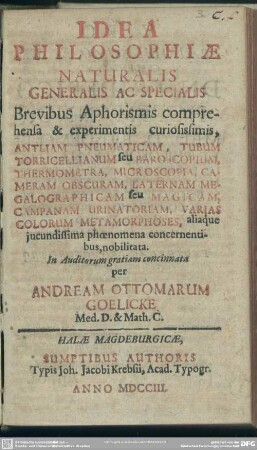 IDEA
PHILOSOPHIÆ
NATURALIS
GENERALIS AC SPECIALIS
Brevibus Aphorismis compre-
hensa & experimentis curiosissimis,
ANTLIAM PNEUMATICAM, TUBUM
TORRICELLIANUM seu BAROSCOPIUM,
THERMOMETRA, MICROSCOPIA, CA-
MERAM OBSCURAM, LATERNAM ME-
GALOGRAPHICAM seu MAGICAM,
CAMPANAM URINATORIAM, VARIAS
COLORUM METAMORPHOSES, aliaque
jucundissima phænomena concernenti-
bus, nobilitata.
In Auditorum gratiam concinnata
per
ANDREAM OTTOMARUM
GOELICKE
Med. D. & Math. C.
HALÆ MAGDEBURGICÆ,
SUMPTIBUS AUTHORIS
Typis Joh. Jacobi Krebsii, Acad. Typogr.
ANNO MDCCIII.
DFG